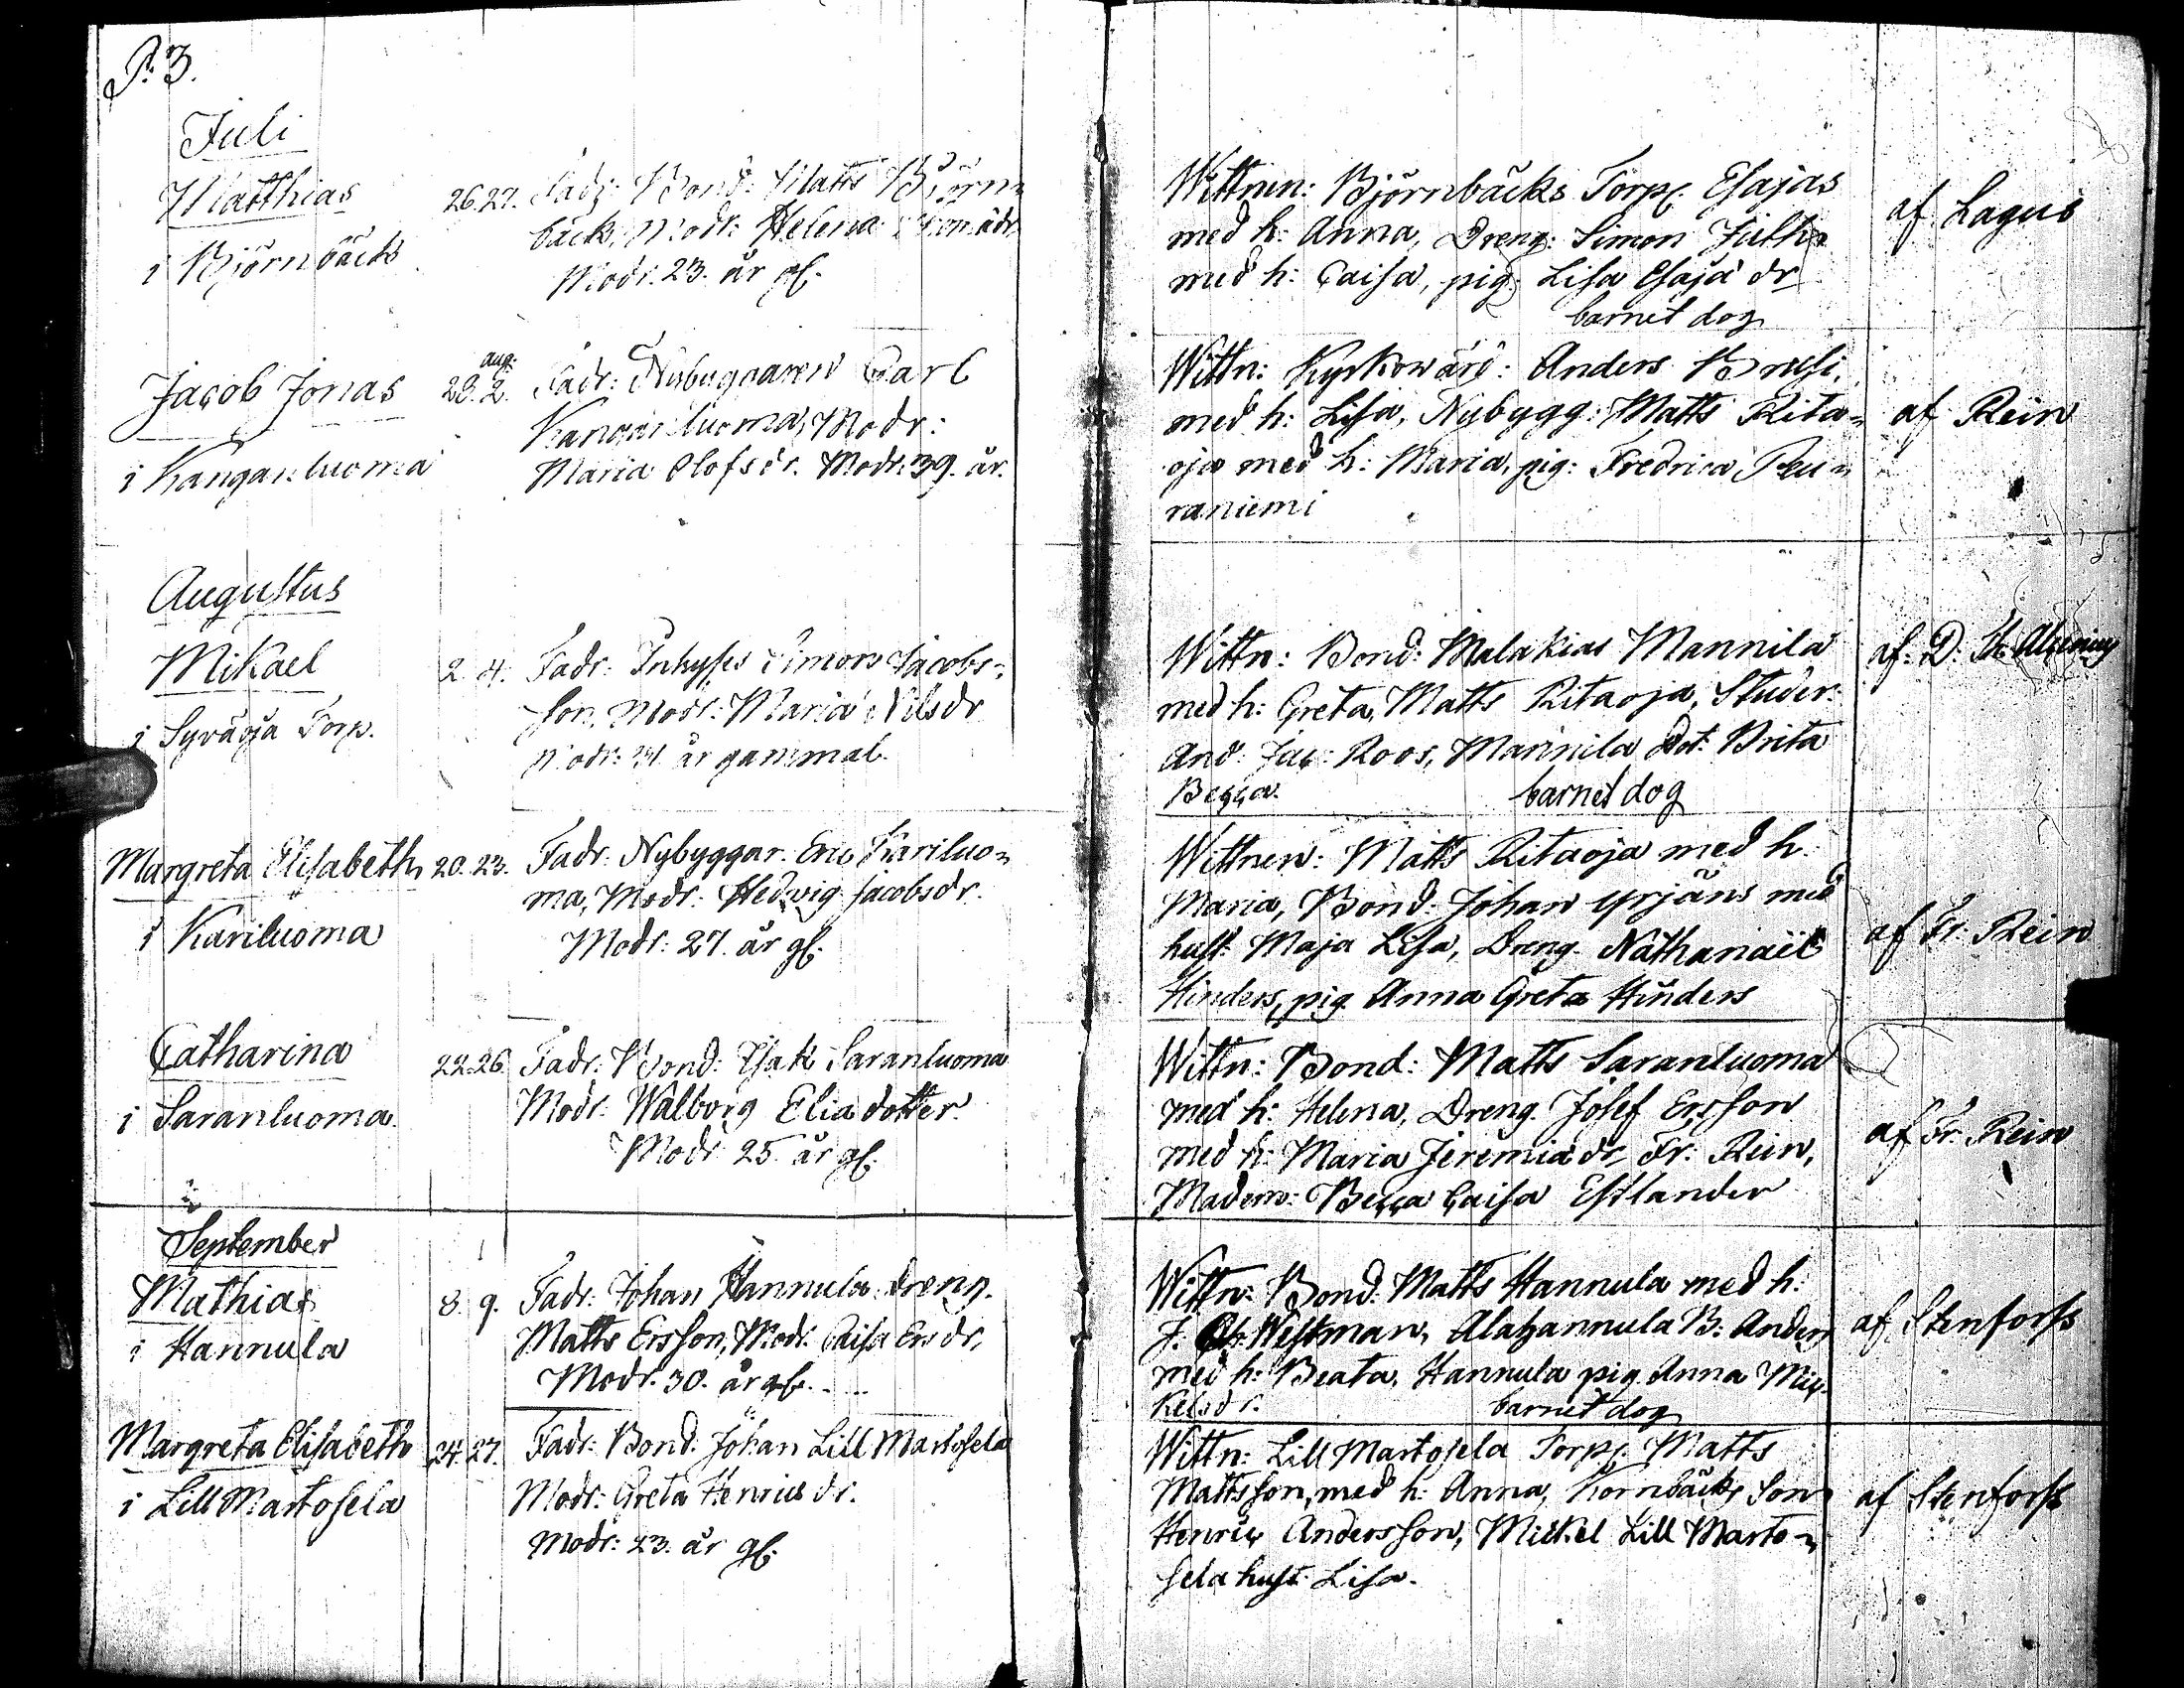 P. 3.
Juli
Matthias
i Björnbäcks
26. 27.
Fadr: Bond: Matts Björn=
bäck, Modr: Helena
Modr. 23. år gl.
Wittnen: Björnbäcks Torp. Esajas
med h: Anna, Dreng: Simon
med h: Caisa, pig. Lisa Esaja dr
barnet dog
af Lagus
Jacob Jonas
i Kanganluoma
aug:
29. 2.
Fadr: Nybyggaren Carl
Kanganluoma, Modr:
Maria Olofsdr. Modr. 39. år.
Wittn: Kyrkowärd: Anders
med h: Lisa, Nybygg: Matts Rita=
oja med h: Maria, pig: Fredrica Peu=
raniemi
af Rein
Augustus
Mikael
i Syväoja Torp.
2. 4.
Fadr: Inhyses Simon Jacobs=
son, Modr: Maria Nilsdr
Modr: 31. år gammal.
Wittn: Bond: Malakias Mannila
med h: Greta, Matts Ritaoja, Studer.
And: Jac: Roos, Mannila Dot. Brita
Becca.
barnet dog
af: D: H:
Margreta Elisabeth
i Kariluoma
20. 23.
Fadr: Nybyggar. Eric Kariluo=
ma, Modr: Hedvig Jacobsdr.
Modr: 27. år gl.
Wittnen: Matts Ritaoja med h.
Maria, Bond: Johan Yrjäns med
hust. Maja Lisa, Dreng. Nathanaël
Hinders, pig. Anna Greta Hinders
af Fr: Rein
Catharina
i Saranluoma.
22. 26.
Fadr: Bond: Esak Saranluoma
Modr. Walborg Elia dotter.
Modr 25. år gl.
Wittn: Bond: Matts Saranluoma
med h: Helena, Dreng. Josef Ersson
med h: Maria Jeremia dr, Fr: Rein,
Madem: Becca Caisa Estlander
af Fr. Rein
September
Mathias
i Hannula
8. 9.
Fadr: Johan Hannula dreng.
Matts Ersson, Modr. Caisa Ersdr,
Modr. 30. år gl.
Wittn: Bond. Matts Hannula med h:
J. Westman, Alahannula B: Anders
med h: Beata, Hannula pig. Anna Mic=
kelsdr.
barnet dog
af Stenforss
Margreta Elisabeth
i Lill Martosela
24. 27.
Fadr: Bond: Johan Lill Martosela
Modr: Greta Henricsdr.
Modr: 23. år gl.
Wittn: Lill Martosela Torp. Matts
Mattsson, med h: Anna, Körnbäcks Son
Henric Andersson, Mickel Lill Marto=
sela hust: Lisa.
af Stenforss